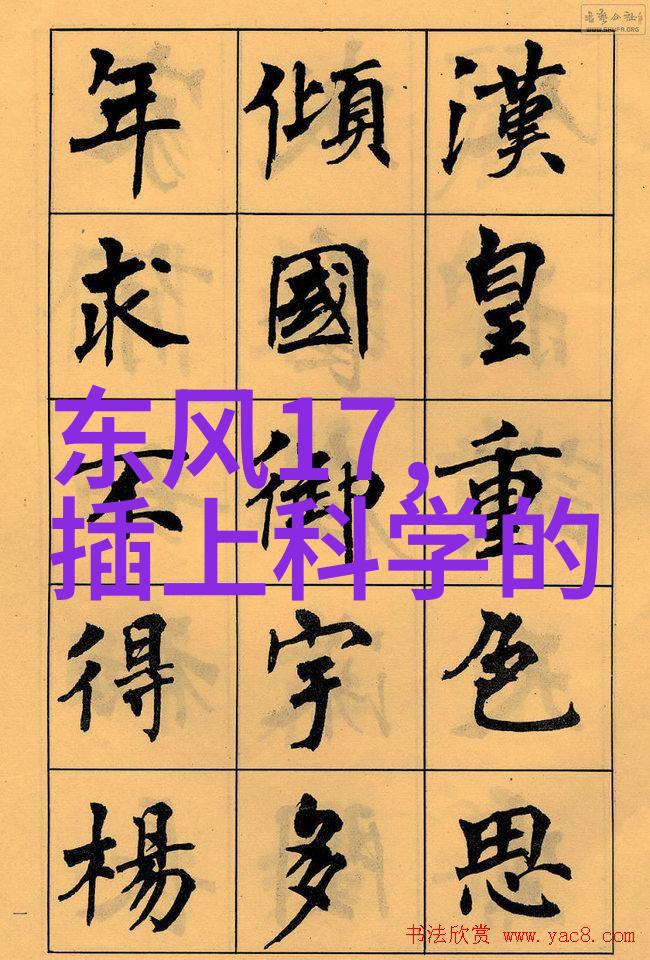 漢皇重色思
傾國御宇多
年求不得楊
东风17,
插上科学的
WWW.SHUFA.ORG
书法欣赏 www.yac8.com
一